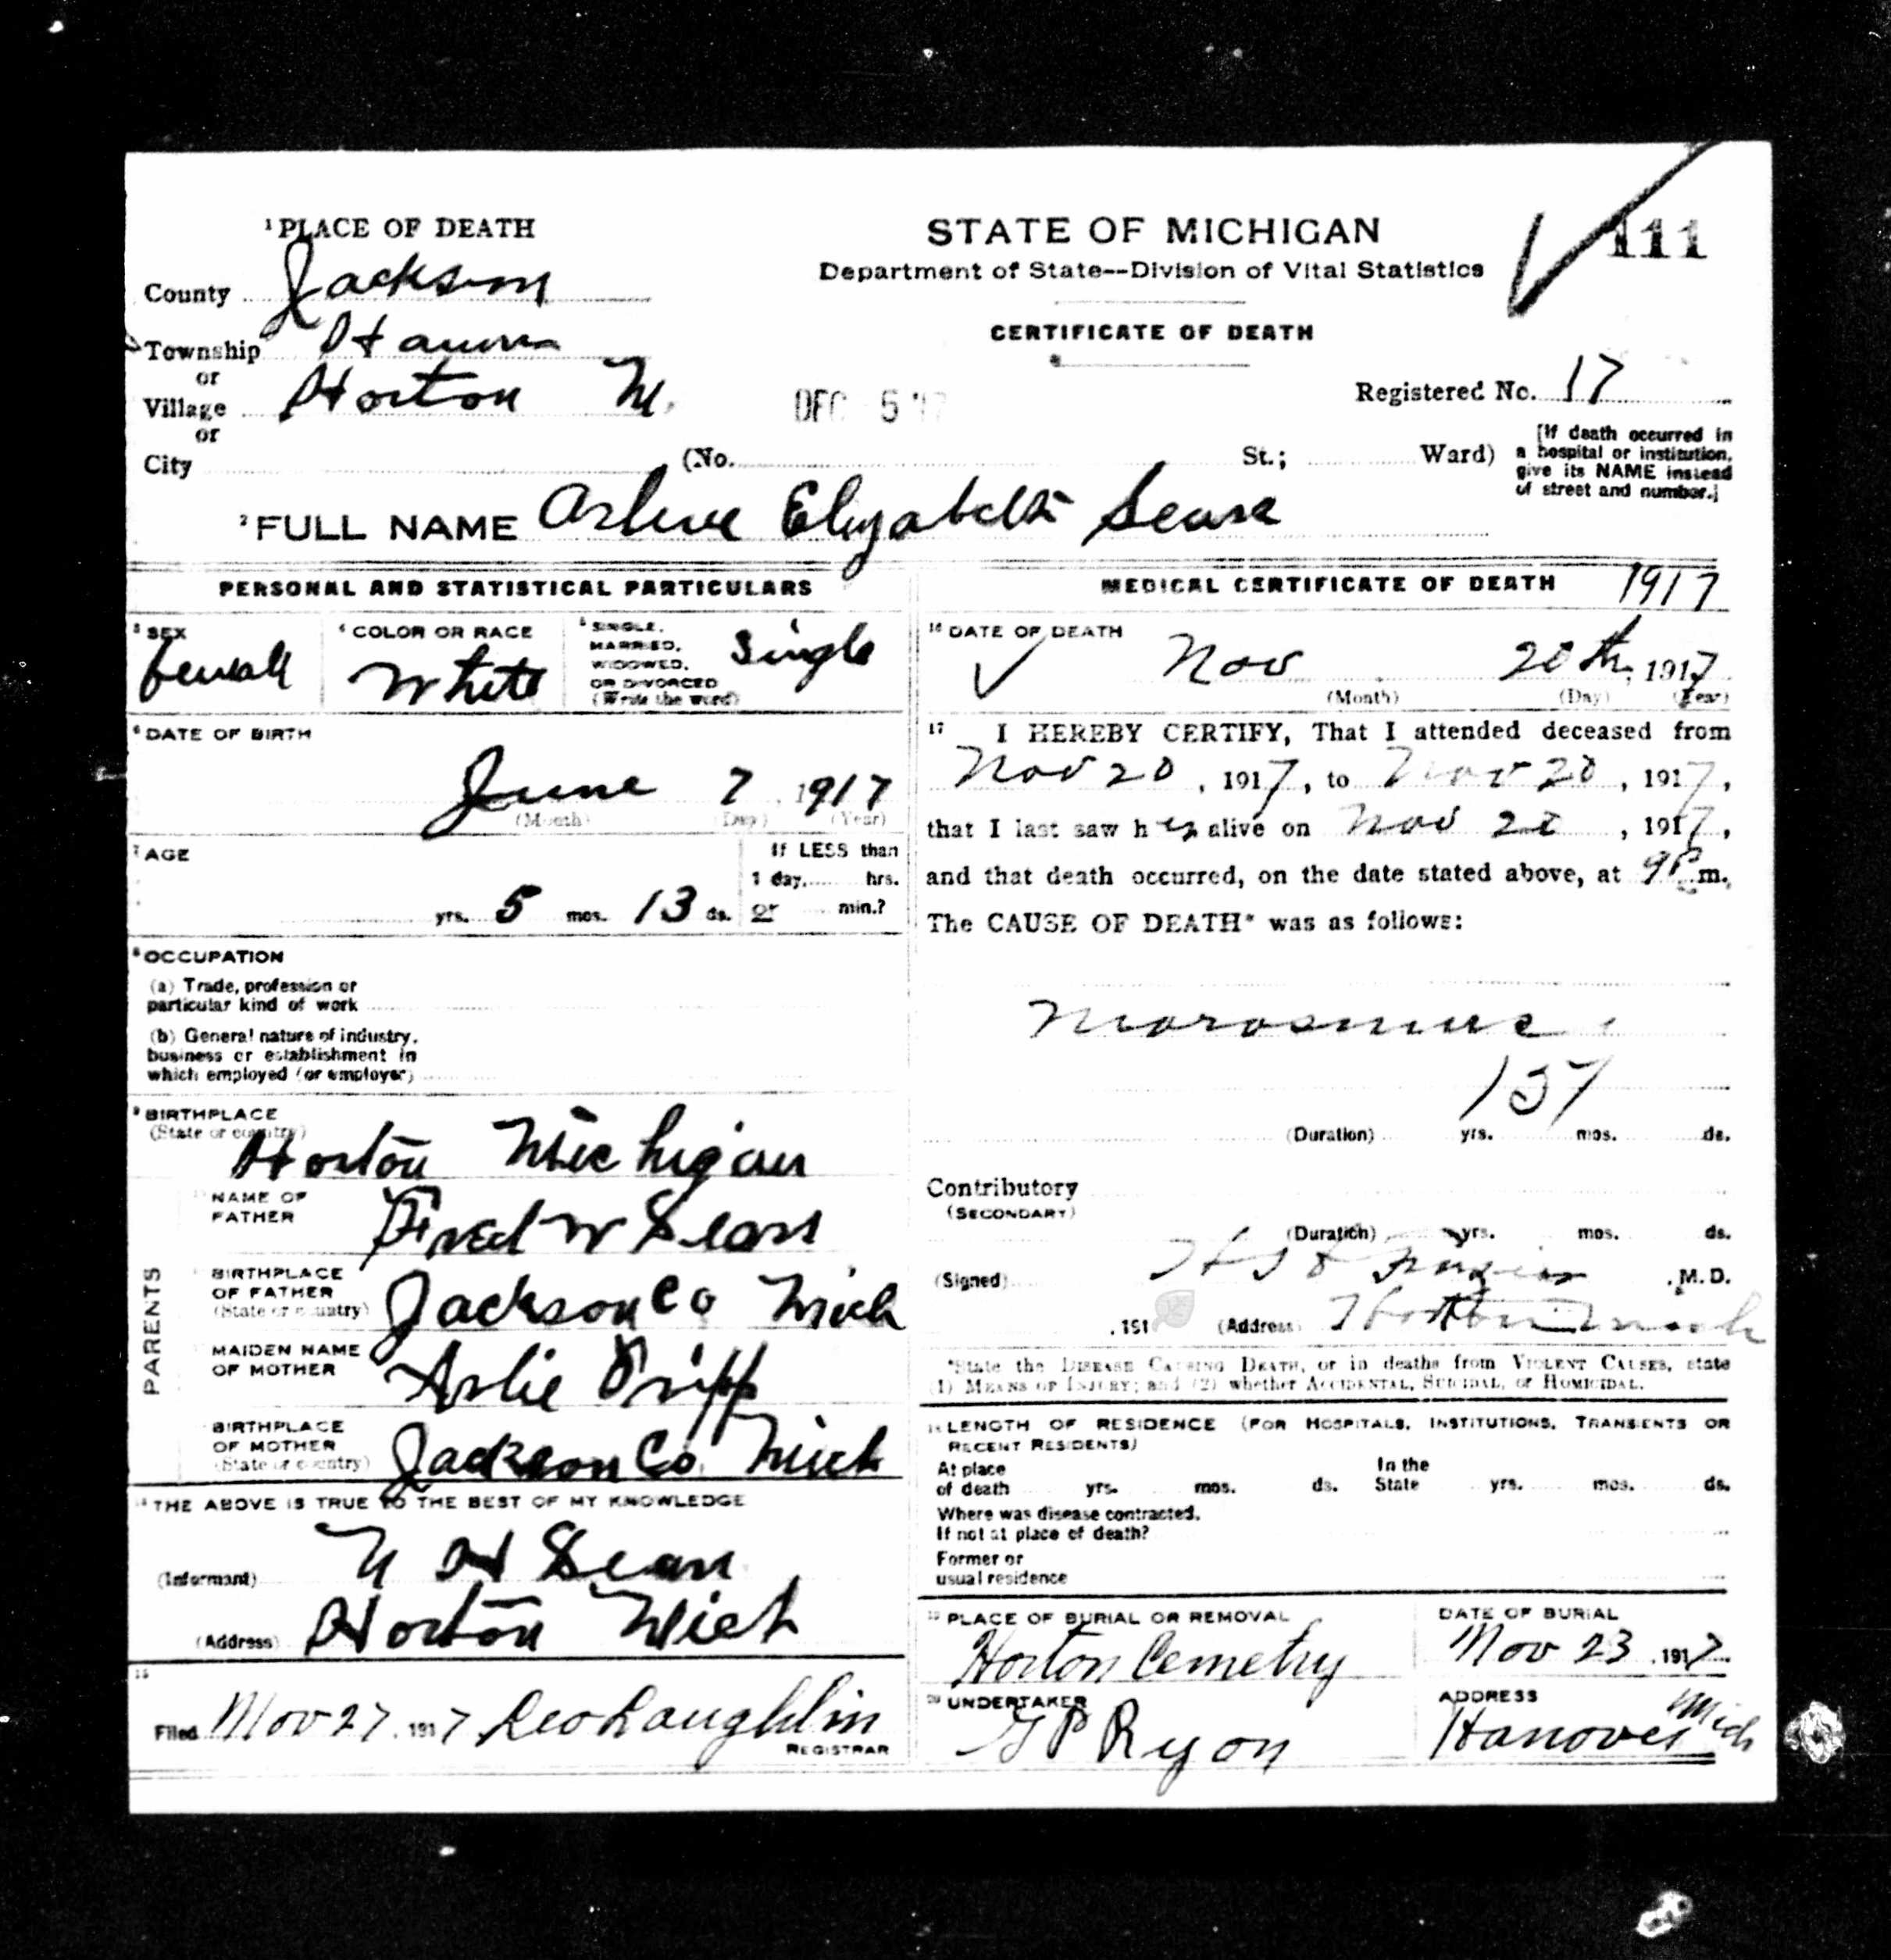 1 PLACE OF DEATH
STATE OF MICHIGAN
111
Department of State--Division of Vital Statistics
County Jackson
CERTIFICATE OF DEATH
Township
or
Village Horton M.
DEC 5 '17
Registered No. 17
or
City (No. St.; Ward)
[If death occurred in
a hospital or institution,
give its NAME instead
of street and number.]
2 FULL NAME Arlene Elizabeth Sears
PERSONAL AND STATISTICAL PARTICULARS
3 SEX
female
4 COLOR OR RACE
White
5 SINGLE,
MARRIED,
WIDOWED,
OR DIVORCED
(Write the word)
Single
6 DATE OF BIRTH
June 7 1917
(Month) (Day) (Year)
7 AGE
If LESS than
1 day, hrs.
yrs. 5 mos. 13 ds. or min.?
8 OCCUPATION
(a) Trade, profession or
particular kind of work
(b) General nature of industry,
business or establishment in
which employed (or employer)
9 BIRTHPLACE
(State or country)
Horton Michigan
PARENTS
NAME OF
FATHER
Fred W Sears
BIRTHPLACE
OF FATHER
(State or country)
Jackson Co Mich
MAIDEN NAME
OF MOTHER
Arlie Tripp
BIRTHPLACE
OF MOTHER
(State or country)
Jackson Co. Mich
14 THE ABOVE IS TRUE TO THE BEST OF MY KNOWLEDGE
(Informant) H Sears
(Address) Horton Mich
15
Filed Nov 27, 1917 Leo Laughlin
REGISTRAR
MEDICAL CERTIFICATE OF DEATH 1917
16 DATE OF DEATH
Nov 20th, 1917
(Month) (Day) (Year)
17 I HEREBY CERTIFY, That I attended deceased from
Nov 20, 1917, to Nov 20, 1917,
that I last saw her alive on Nov 20, 1917,
and that death occurred, on the date stated above, at 9 P m.
The CAUSE OF DEATH* was as follows:
Marasmus
(Duration) yrs. mos. ds.
Contributory
(SECONDARY)
(Duration) yrs. mos. ds.
(Signed) M.D.
, 191 (Address) Horton Mich
*State the DISEASE CAUSING DEATH, or in deaths from VIOLENT CAUSES, state
(1) MEANS OF INJURY; and (2) whether ACCIDENTAL, SUICIDAL, or HOMICIDAL.
18 LENGTH OF RESIDENCE (FOR HOSPITALS, INSTITUTIONS, TRANSIENTS OR
RECENT RESIDENTS)
At place
of death yrs. mos. ds.
In the
State yrs. mos. ds.
Where was disease contracted,
If not at place of death?
Former or
usual residence
19 PLACE OF BURIAL OR REMOVAL
Horton Cemetry
DATE OF BURIAL
Nov 23, 1917
20 UNDERTAKER
G P Ryon
ADDRESS
Hanover Mich